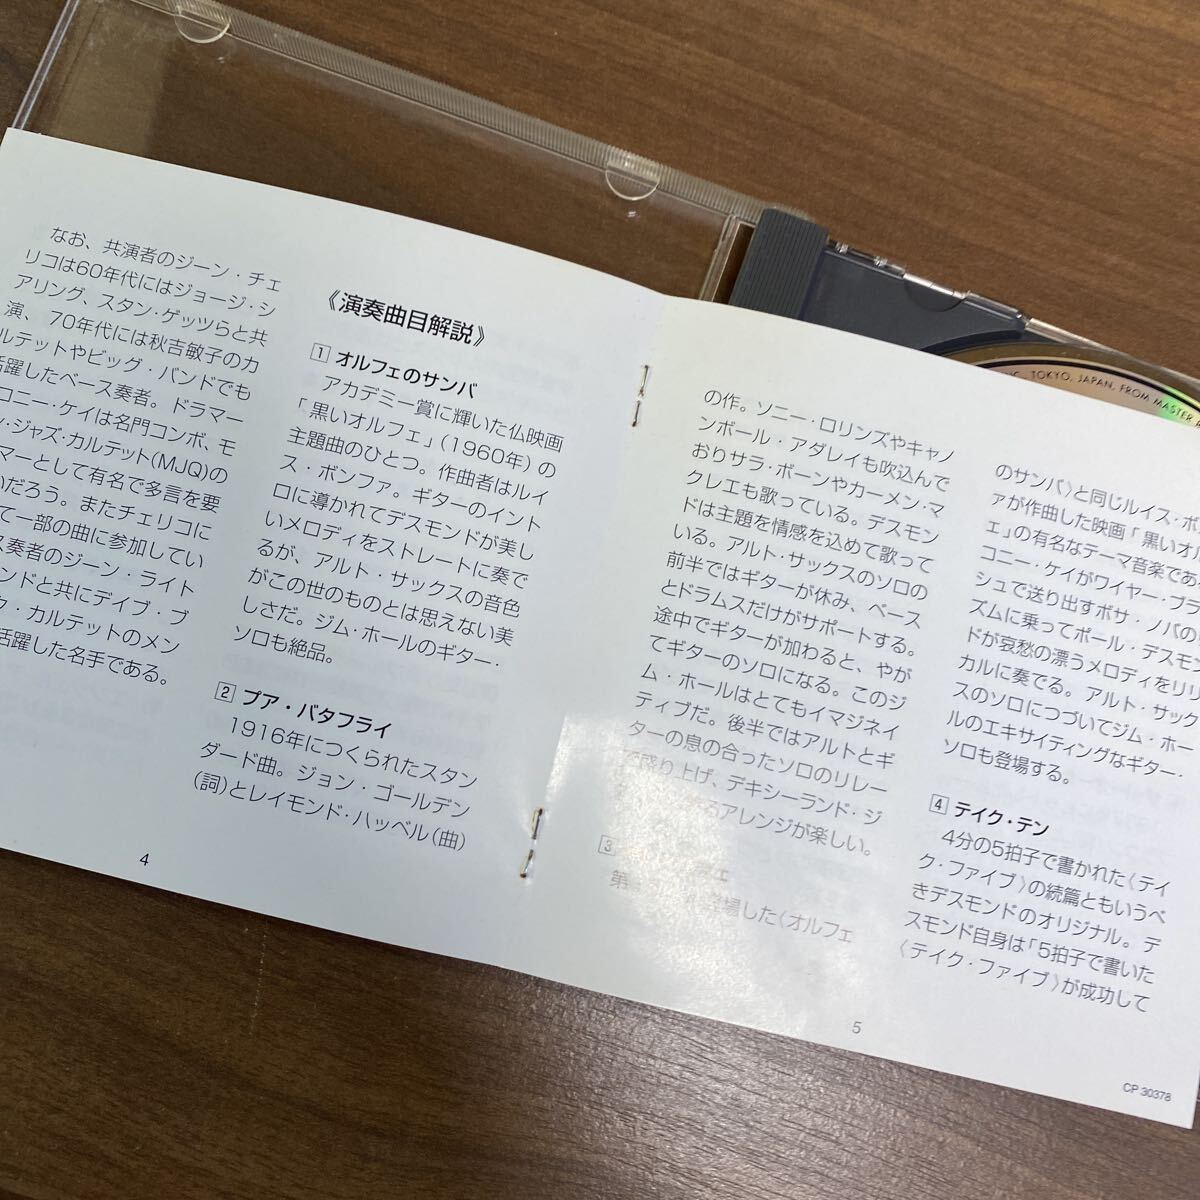 なお、共演者のジーン・チェ
リコは60年代にはジョージ・シ
アリング、スタン・ゲッツらと共
演、70年代には秋吉敏子のカ
ルテットやビッグ・バンドでも
活躍したベース奏者。ドラマー
コニー・ケイは名門コンボ、モ
ン・ジャズ・カルテット(MJQ)の
マーとして有名で多言を要
いだろう。またチェリコに
て一部の曲に参加してい
ス奏者のジーン・ライト
ンドと共にデイブ・ブ
ク・カルテットのメン
活躍した名手である。
《演奏曲目解説》
1 オルフェのサンバ
アカデミー賞に輝いた仏映画
「黒いオルフェ」(1960年)の
主題曲のひとつ。作曲者はルイ
ス・ボンファ。ギターのイント
ロに導かれてデスモンドが美し
いメロディをストレートに奏で
るが、アルト・サックスの音色
がこの世のものとは思えない美
しさだ。ジム・ホールのギター・
ソロも絶品。
2 プア・バタフライ
1916年につくられたスタン
ダード曲。ジョン・ゴールデン
(詞)とレイモンド・ハッベル(曲)
4
の作。ソニー・ロリンズやキャノ
ンボール・アダレイも吹込んで
おりサラ・ボーンやカーメン・マ
クレエも歌っている。デスモン
ドは主題を情感を込めて歌って
いる。アルト・サックスのソロの
前半ではギターが休み、ベース
とドラムスだけがサポートする。
途中でギターが加わると、やが
てギターのソロになる。このジ
ム・ホールはとてもイマジネイ
ティブだ。後半ではアルトとギ
ターの息の合ったソロのリレー
で盛り上げ、デキシーランド・ジ
るアレンジが楽しい。
3
第
登場した〈オルフェ
のサンバ〉と同じルイス・ボ
ァが作曲した映画「黒いオル
ェ」の有名なテーマ音楽であ
コニー・ケイがワイヤー・ブラ
シュで送り出すボサ・ノバの
ズムに乗ってポール・デスモ
ドが哀愁の漂うメロディをリリ
カルに奏でる。アルト・サック
スのソロにつづいてジム・ホー
ルのエキサイティングなギター・
ソロも登場する。
4 テイク・テン
4分の5拍子で書かれた〈テイ
ク・ファイブ〉の続篇ともいうべ
きデスモンドのオリジナル。デ
スモンド自身は「5拍子で書いた
〈テイク・ファイブ〉が成功して
5
CP 30378
TOKYO, JAPAN, FROM MASTER